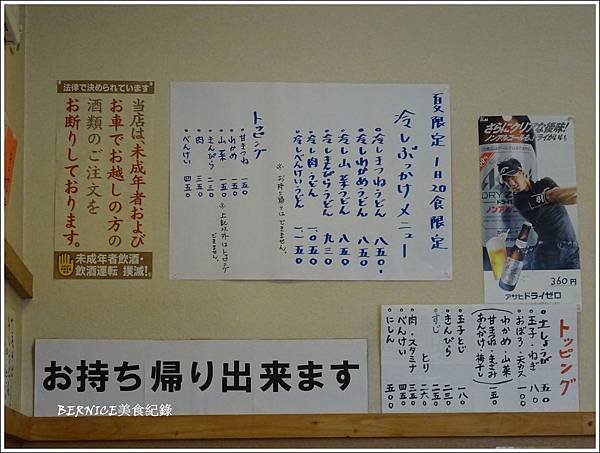 法律で決められています
当店は、未成年者および
お車でお越しの方の
酒類のご注文を
お断りしております。
未成年者飲酒・
飲酒運転 撲滅!
夏限定 1日20食限定
冷しぶっかけメニュー
冷しきつねうどん 八五〇
冷しわかめうどん 八五〇
冷し山菜うどん 八五〇
冷しきんぴらうどん 九三〇
冷し肉うどん 一〇五〇
冷しべんけいうどん 一二五〇
※お持ち帰りはできません。
トッピング
甘きつね 一五〇
わかめ 一五〇
山菜 一五〇
きんぴら 二三〇
肉 三五〇
べんけい 四五〇
※上記以外はトッピング
できません。
さらにクリアな後味!
ノンアルコールなのにドライがいい。
DRY ZERO
360円
アサヒドライゼロ
トッピング
土しょうが 五〇
玉子・ねぎ 八〇
おぼろ・天カス 一〇〇
わかめ・山菜
甘きつね・きざみ 一五〇
あんかけ・梅干し
玉子とじ 一八〇
きんぴら 二三〇
すじ 二五〇
とり 二六〇
肉・スタミナ 三五〇
べんけい 四五〇
にしん 五〇〇
お持ち帰り出来ます
BERNICE美食紀錄